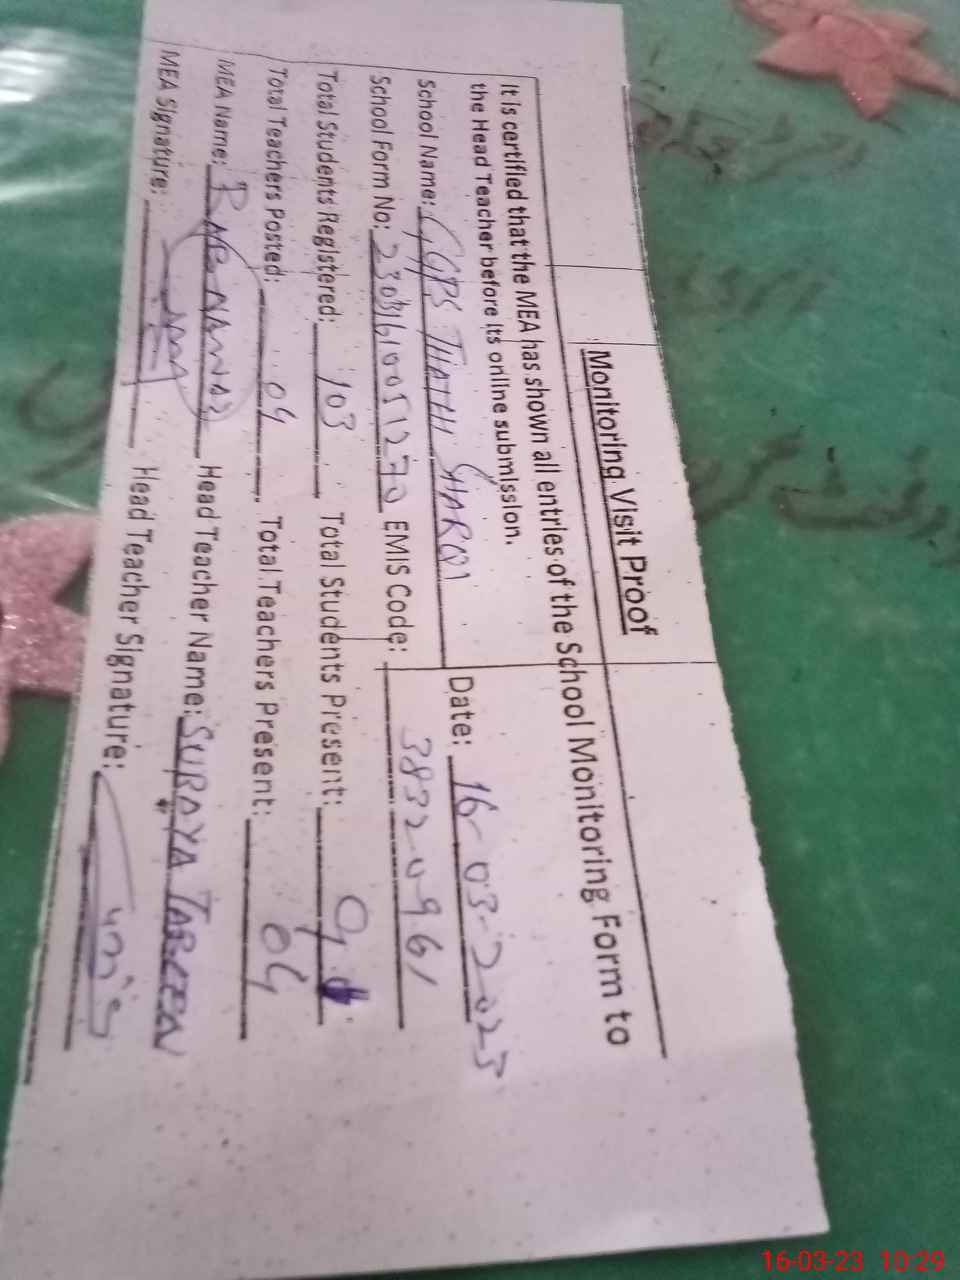 Monitoring Visit Proof
It is certified that the MEA has shown all entries of the School Monitoring Form to
the Head Teacher before its online submission.
School Name: GGPS THATHI SHARQI Date: 16-03-2023
School Form No: EMIS Code: 38320961
Total Students Registered: 103 Total Students Present: 9
Total Teachers Posted: 04 Total Teachers Present: 04
MEA Name: NAWAZ Head Teacher Name: SURAYA TABCEEN
MEA Signature: Head Teacher Signature:
16-03-23 10:29